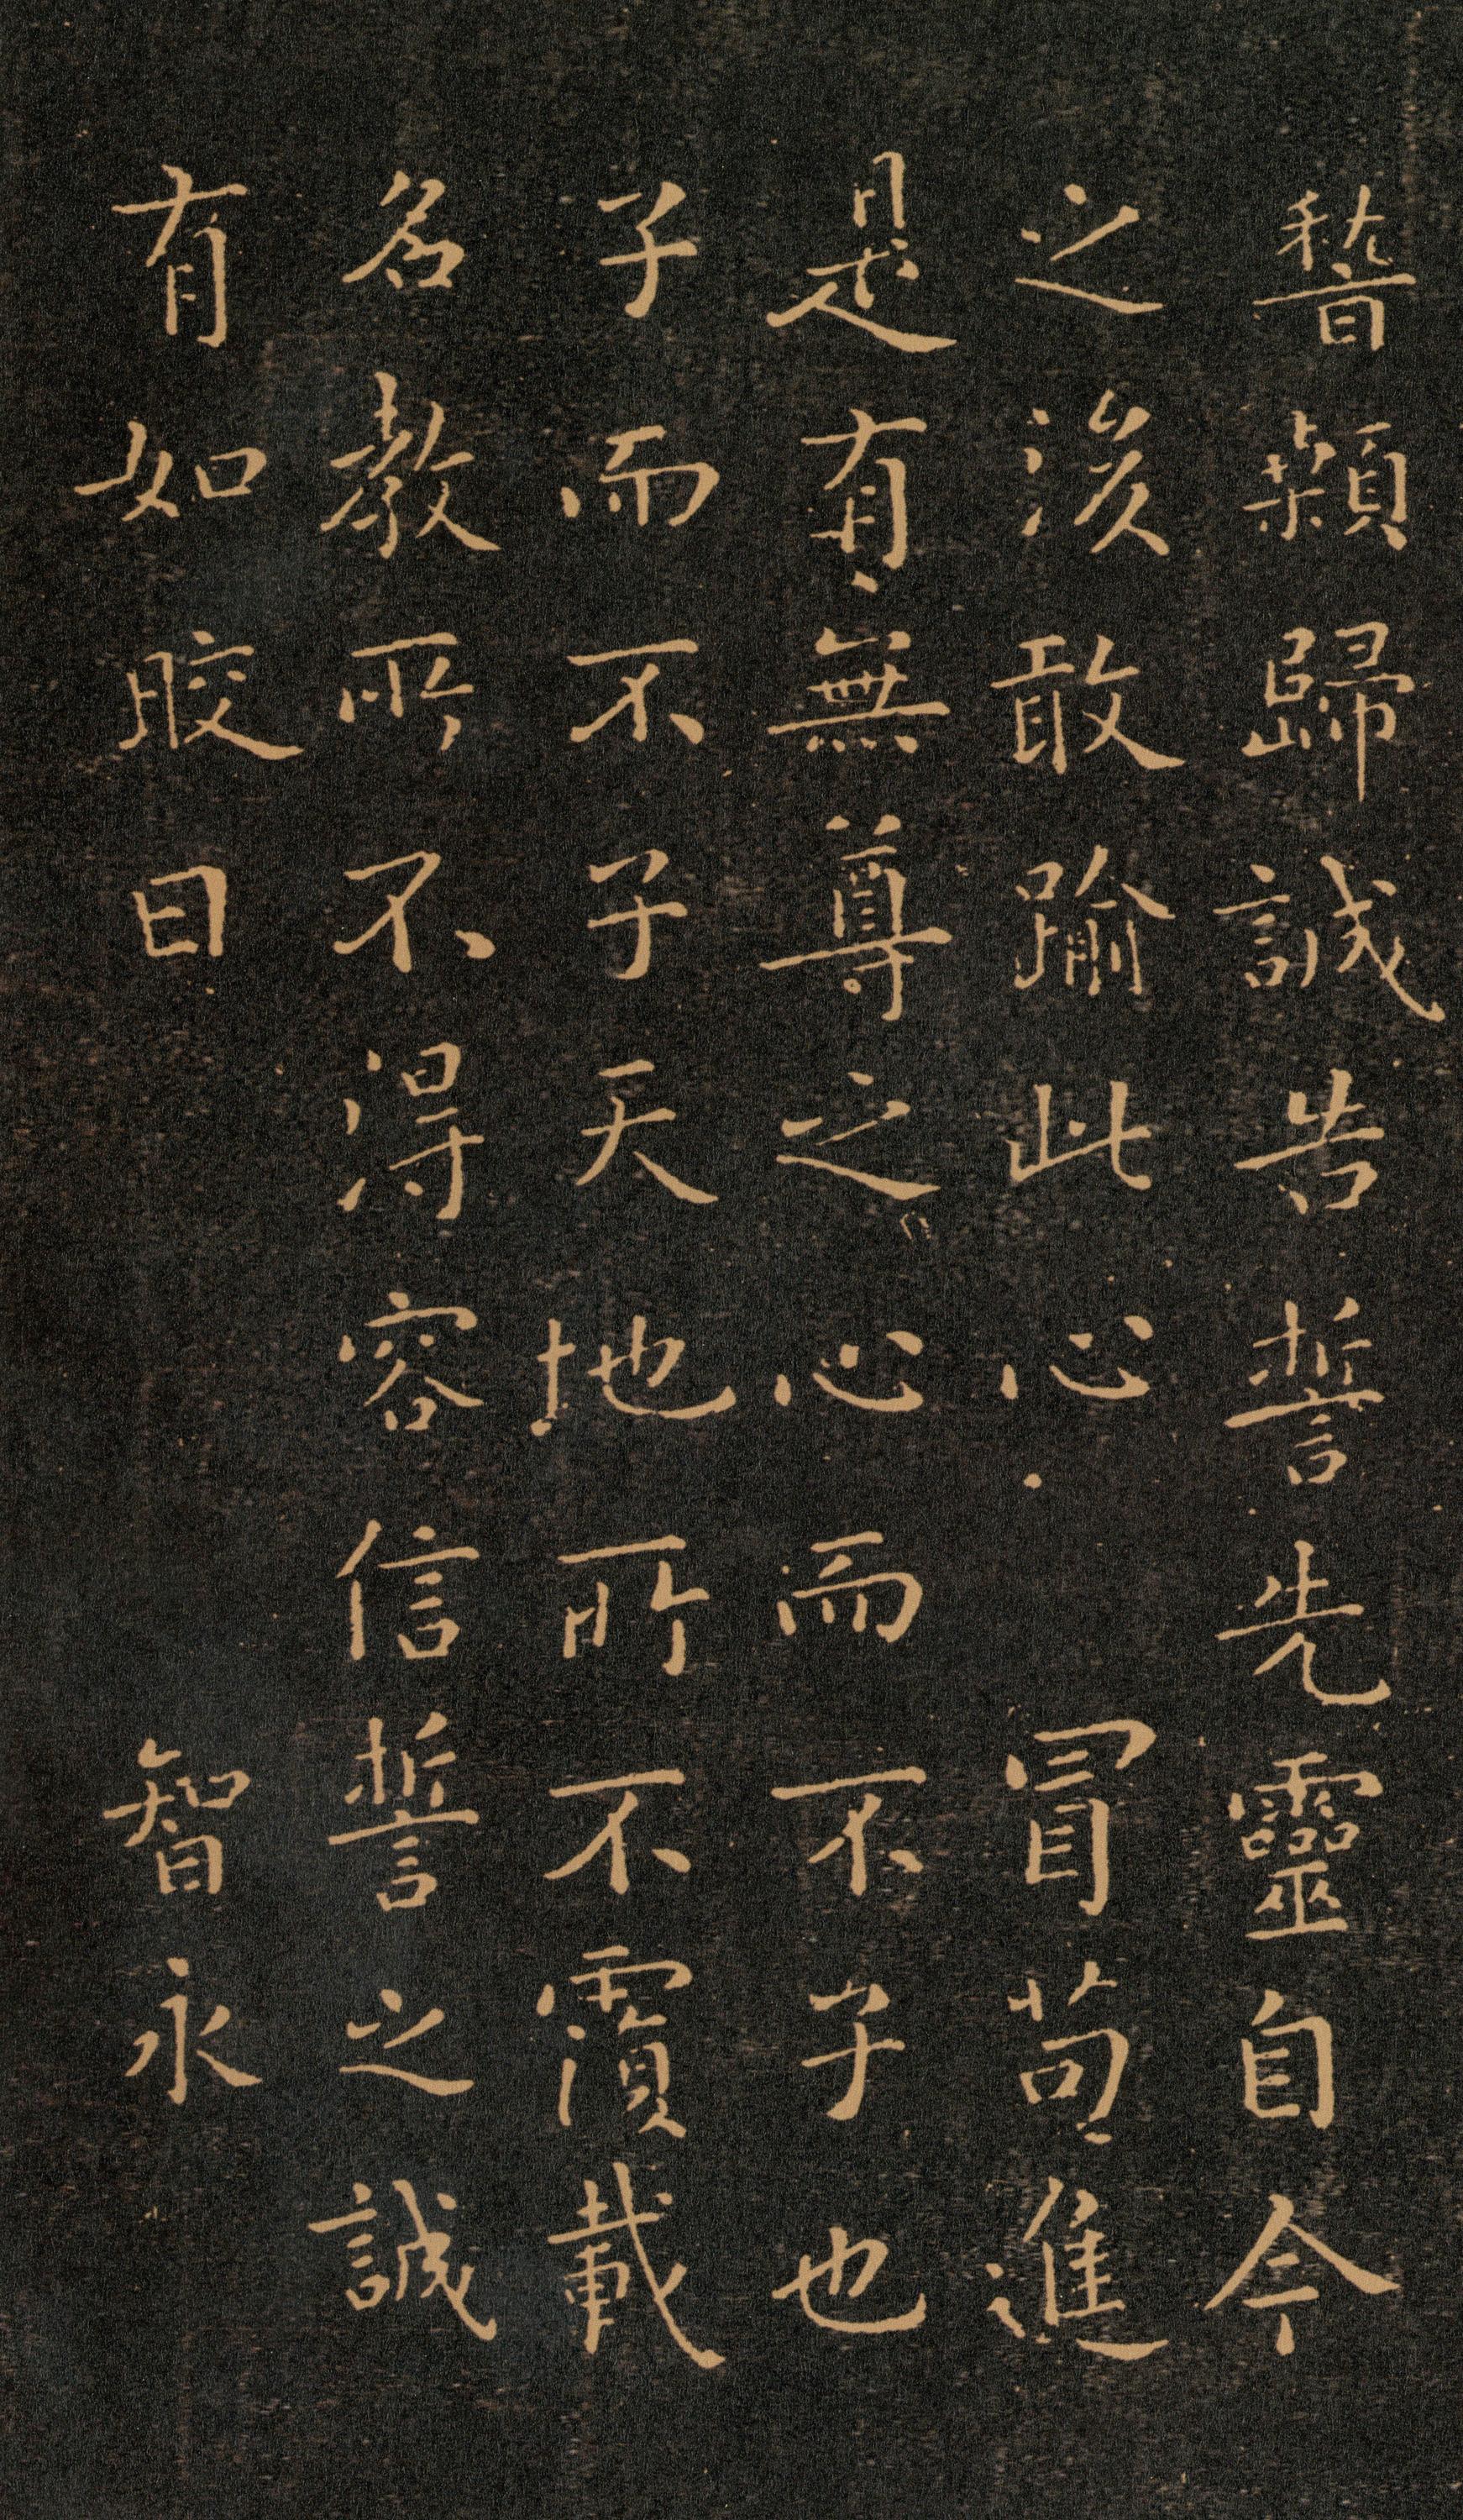 稽顙歸誠告誓先靈自今
之後敢踰此心冒苟進
是有無尊之心而不子也
子而不子天地所不覆載
名教所不得容信誓之誠
有如皎日智永